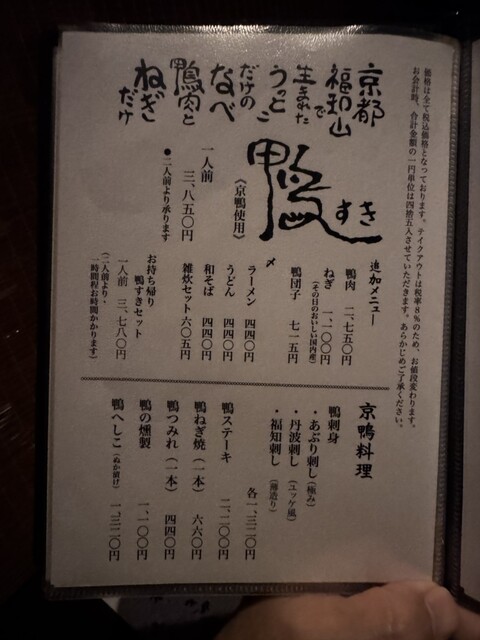 価格は全て税込価格となっております。テイクアウトは税率8％のため、お値段変わります。
お会計時、合計金額の一円単位は四捨五入させていただきます。あらかじめご了承ください。
京都
福知山
で
生まれた
うっとこ
だけの
なべ
鴨肉と
ねぎ
だけ
鴨すき
《京鴨使用》
一人前 三、八五〇円
●二人前より承ります
追加メニュー
鴨肉 二、七五〇円
ねぎ 一、一〇〇円
(その日のおいしい国内産)
鴨団子 七一五円
〆
ラーメン 四四〇円
うどん 四四〇円
和そば 四四〇円
雑炊セット 六〇五円
お持ち帰り
鴨すきセット
一人前 三、七八〇円
(二人前より・
一時間程お時間かかります)
京鴨料理
鴨刺身
・あぶり刺し(極み)
・丹波刺し(ユッケ風)
・福知刺し(薄造り)
各一、三二〇円
鴨ステーキ 二、二〇〇円
鴨ねぎ焼(一本) 六六〇円
鴨つみれ(一本) 四四〇円
鴨の燻製 一、一〇〇円
鴨へしこ(ぬか漬け) 一、三二〇円